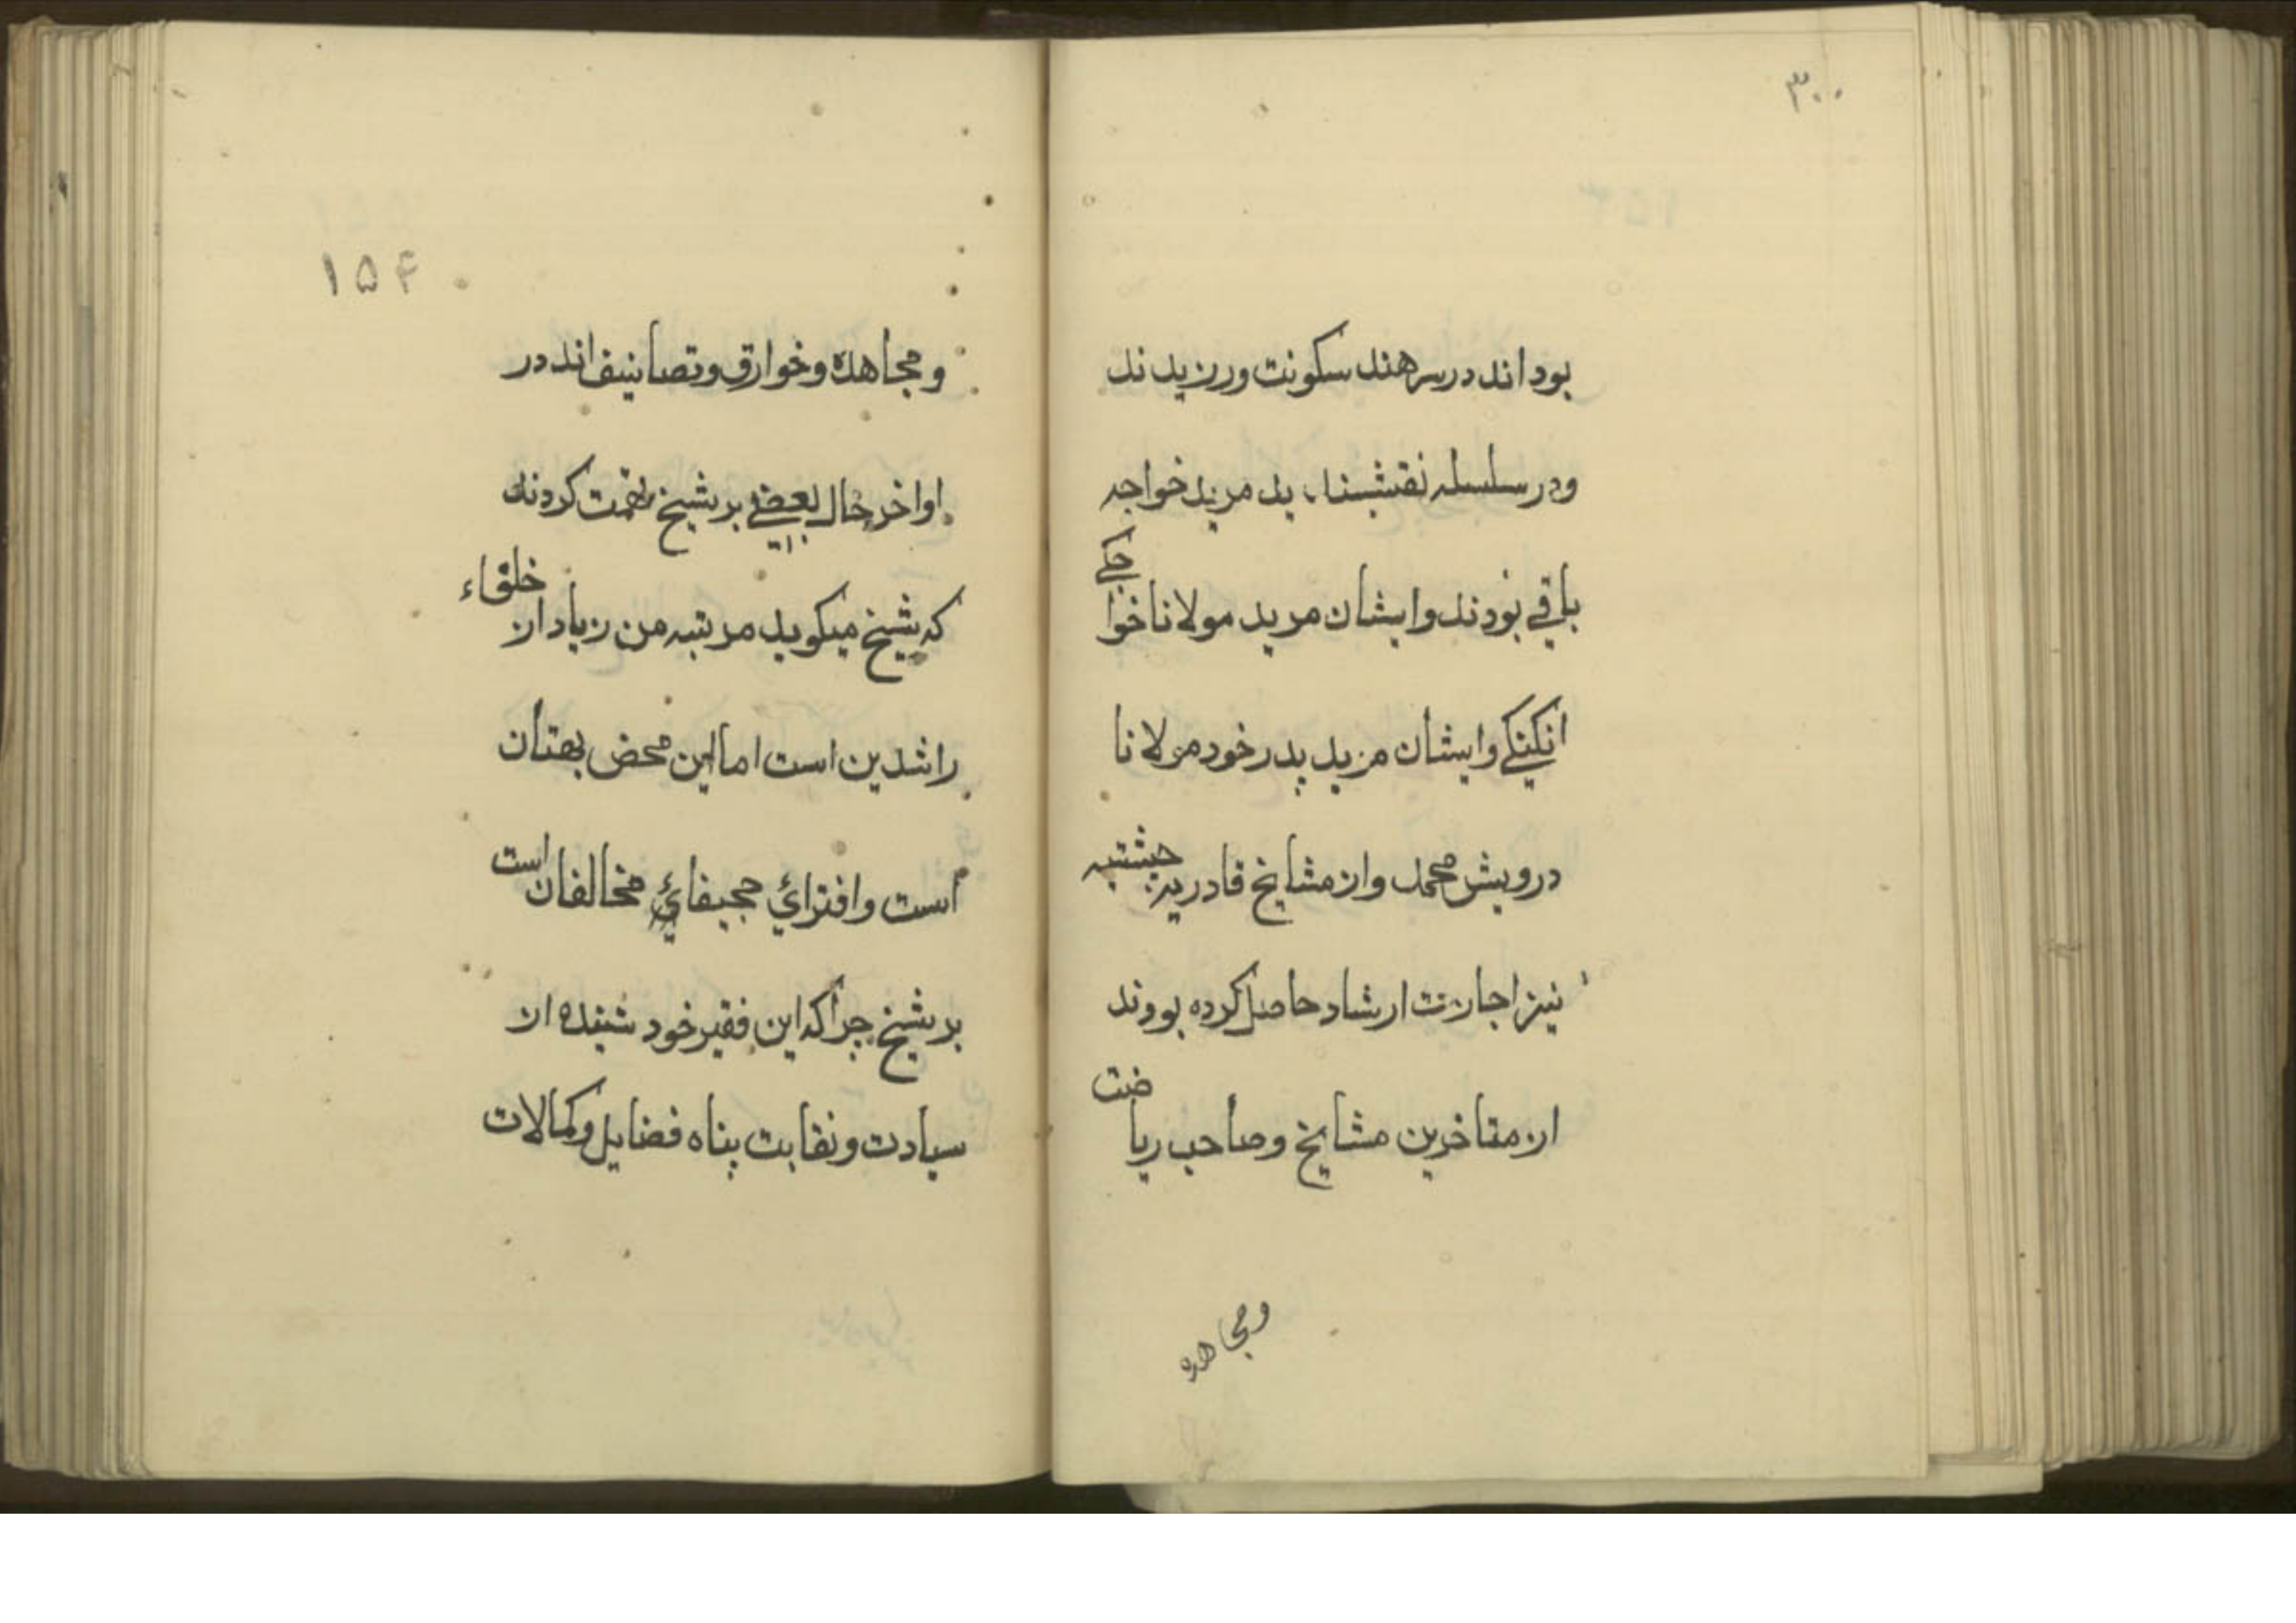 ۳۰۰
بود اند در سرهند سکونت ورزیدند
ودر سلسله نقشبندیه مرید خواجه
باقی بودند وایشان مرید مولانا خواجکی
انکنکی وایشان مرید پدر خود مولانا
درویش محمد واز مشایخ قادریه چشتیه
نیز اجازت ارشاد حاصل کرده بودند
از متاخرین مشایخ وصاحب ریاضت
ومجاهده
۱۵۴
ومجاهده وخوارق وتصانیف اند در
اواخر حال بعضی بر شیخ تهمت کردند
که شیخ میکوید مرتبه من زیاد از خلفاء
راشدین است اما این محض بهتان
است وافترائ مخالفان است
بر شیخ چرا که این فقیر خود شنیده از
سیادت ونقابت پناه فضایل وکمالات